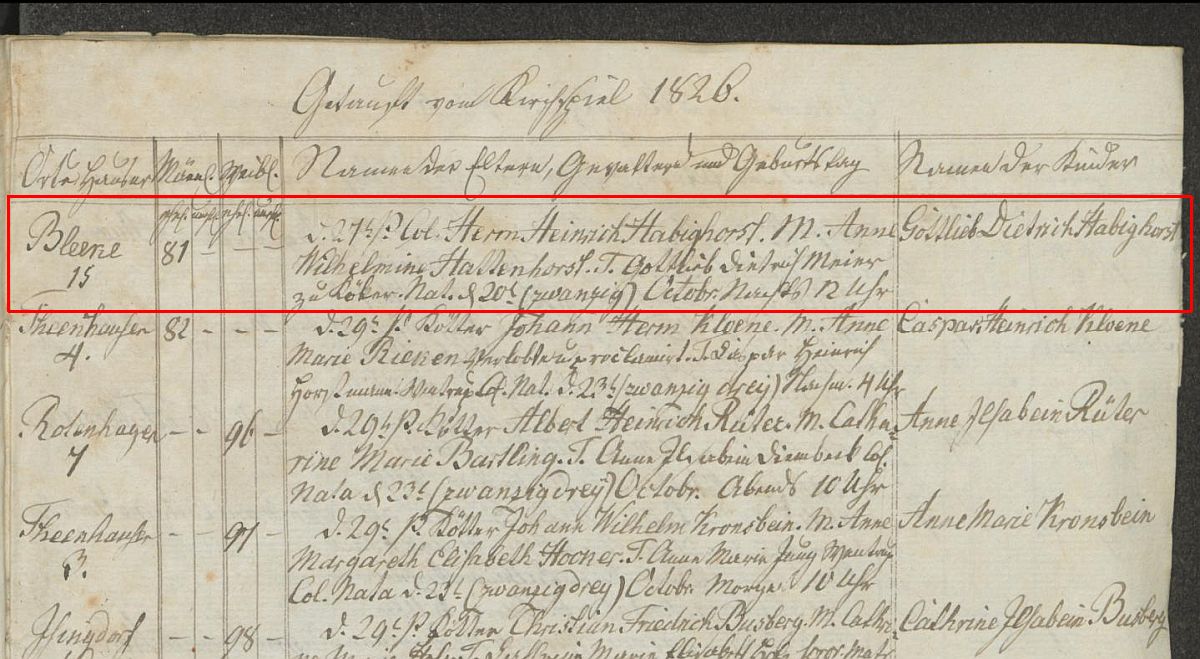 Getauft vom Kirchspiel 1826.
Orte Häuser Männl. Weibl. Namen der Eltern, Gevattern und Geburtstag Namen der Kinder
Bleeke 81 – – – d. 27t. P. Col. Herm Heinrich Habighorst. M. Anne Gottlieb Dietrich Habighorst
15 Wilhelmine Hattenhorst. T. Gottlieb Dietrich Meier
zu Köker. Nat. d 20t (zwanzig) Octobr. Nachts 12 Uhr
Theenhausen 82 – – – d. 29t. P. Kötter Johann Herm Kloene. M. Anne Caspar Heinrich Kloene
4. Marie Rieken verlobte u. proclamirt. T. Caspar Heinrich
Horstmann Nat. d. 23t (zwanzig drey) Nachm. 4 Uhr
Rotenhagen – – 96 – d. 29t. P. Kötter Albert Heinrich Rüter. M. Cathr Anne Ilsabein Rüter
7 rine Marie Bartling. T. Anne Ilsabein Diembeck Col.
Nata d 23t (zwanzig drey) Octobr. Abends 10 Uhr
Theenhausen – – 97 – d. 29t. P. Kötter Johann Wilhelm Kronsbein. M. Anne Anne Marie Kronsbein
3. Margareth Elisabeth Hooner. T. Anne Marie Jung Wentrup
Col. Nata d. 23t (zwanzig drey) Octobr Morgs. 10 Uhr
Isingdorf – – 98 – d. 29t. P. Kötter Christian Friedrich Busberg. M. Cathr. Cathrine Ilsabein Busberg